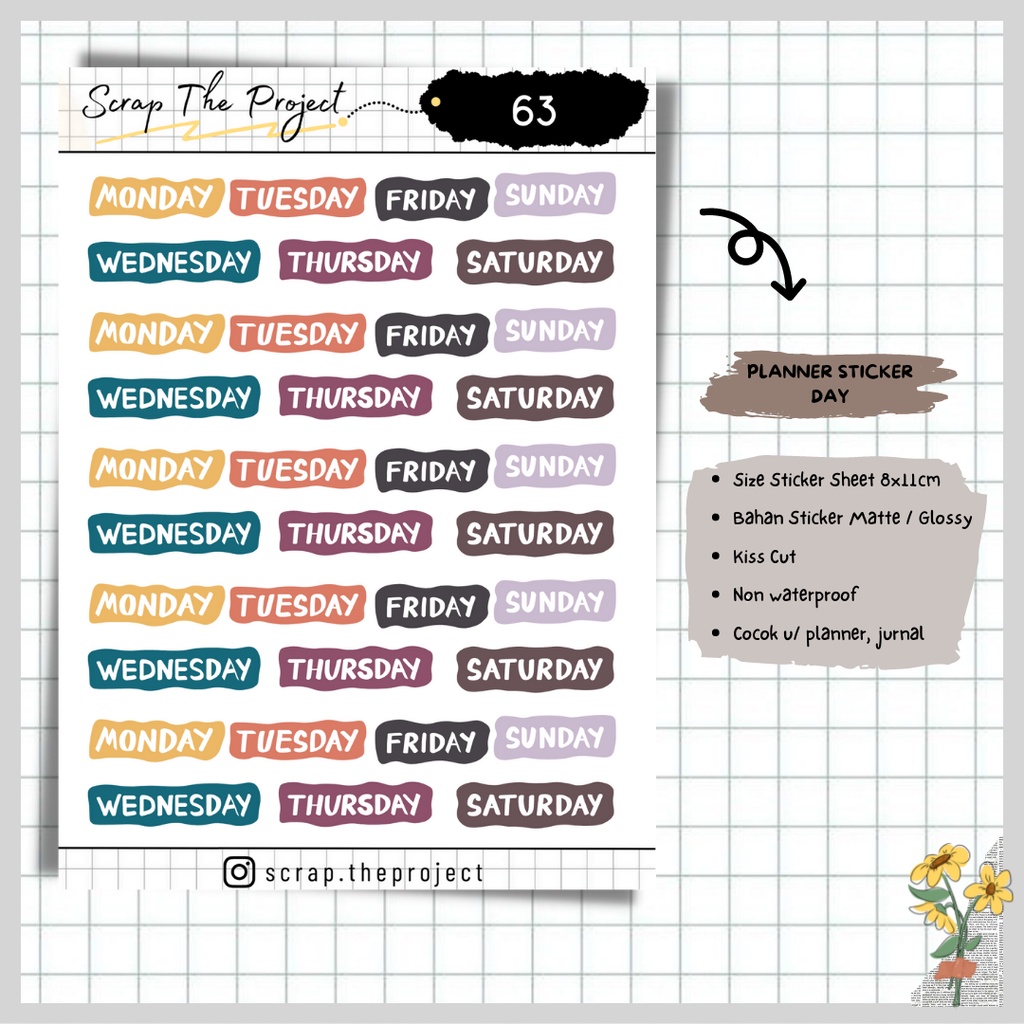 Scrap The Project
63
MONDAY TUESDAY FRIDAY SUNDAY
WEDNESDAY THURSDAY SATURDAY
MONDAY TUESDAY FRIDAY SUNDAY
WEDNESDAY THURSDAY SATURDAY
MONDAY TUESDAY FRIDAY SUNDAY
WEDNESDAY THURSDAY SATURDAY
MONDAY TUESDAY FRIDAY SUNDAY
WEDNESDAY THURSDAY SATURDAY
MONDAY TUESDAY FRIDAY SUNDAY
WEDNESDAY THURSDAY SATURDAY
scrap.theproject
PLANNER STICKER
DAY
• Size Sticker Sheet 8x11cm
• Bahan Sticker Matte / Glossy
• Kiss Cut
• Non waterproof
• Cocok u/ planner, jurnal